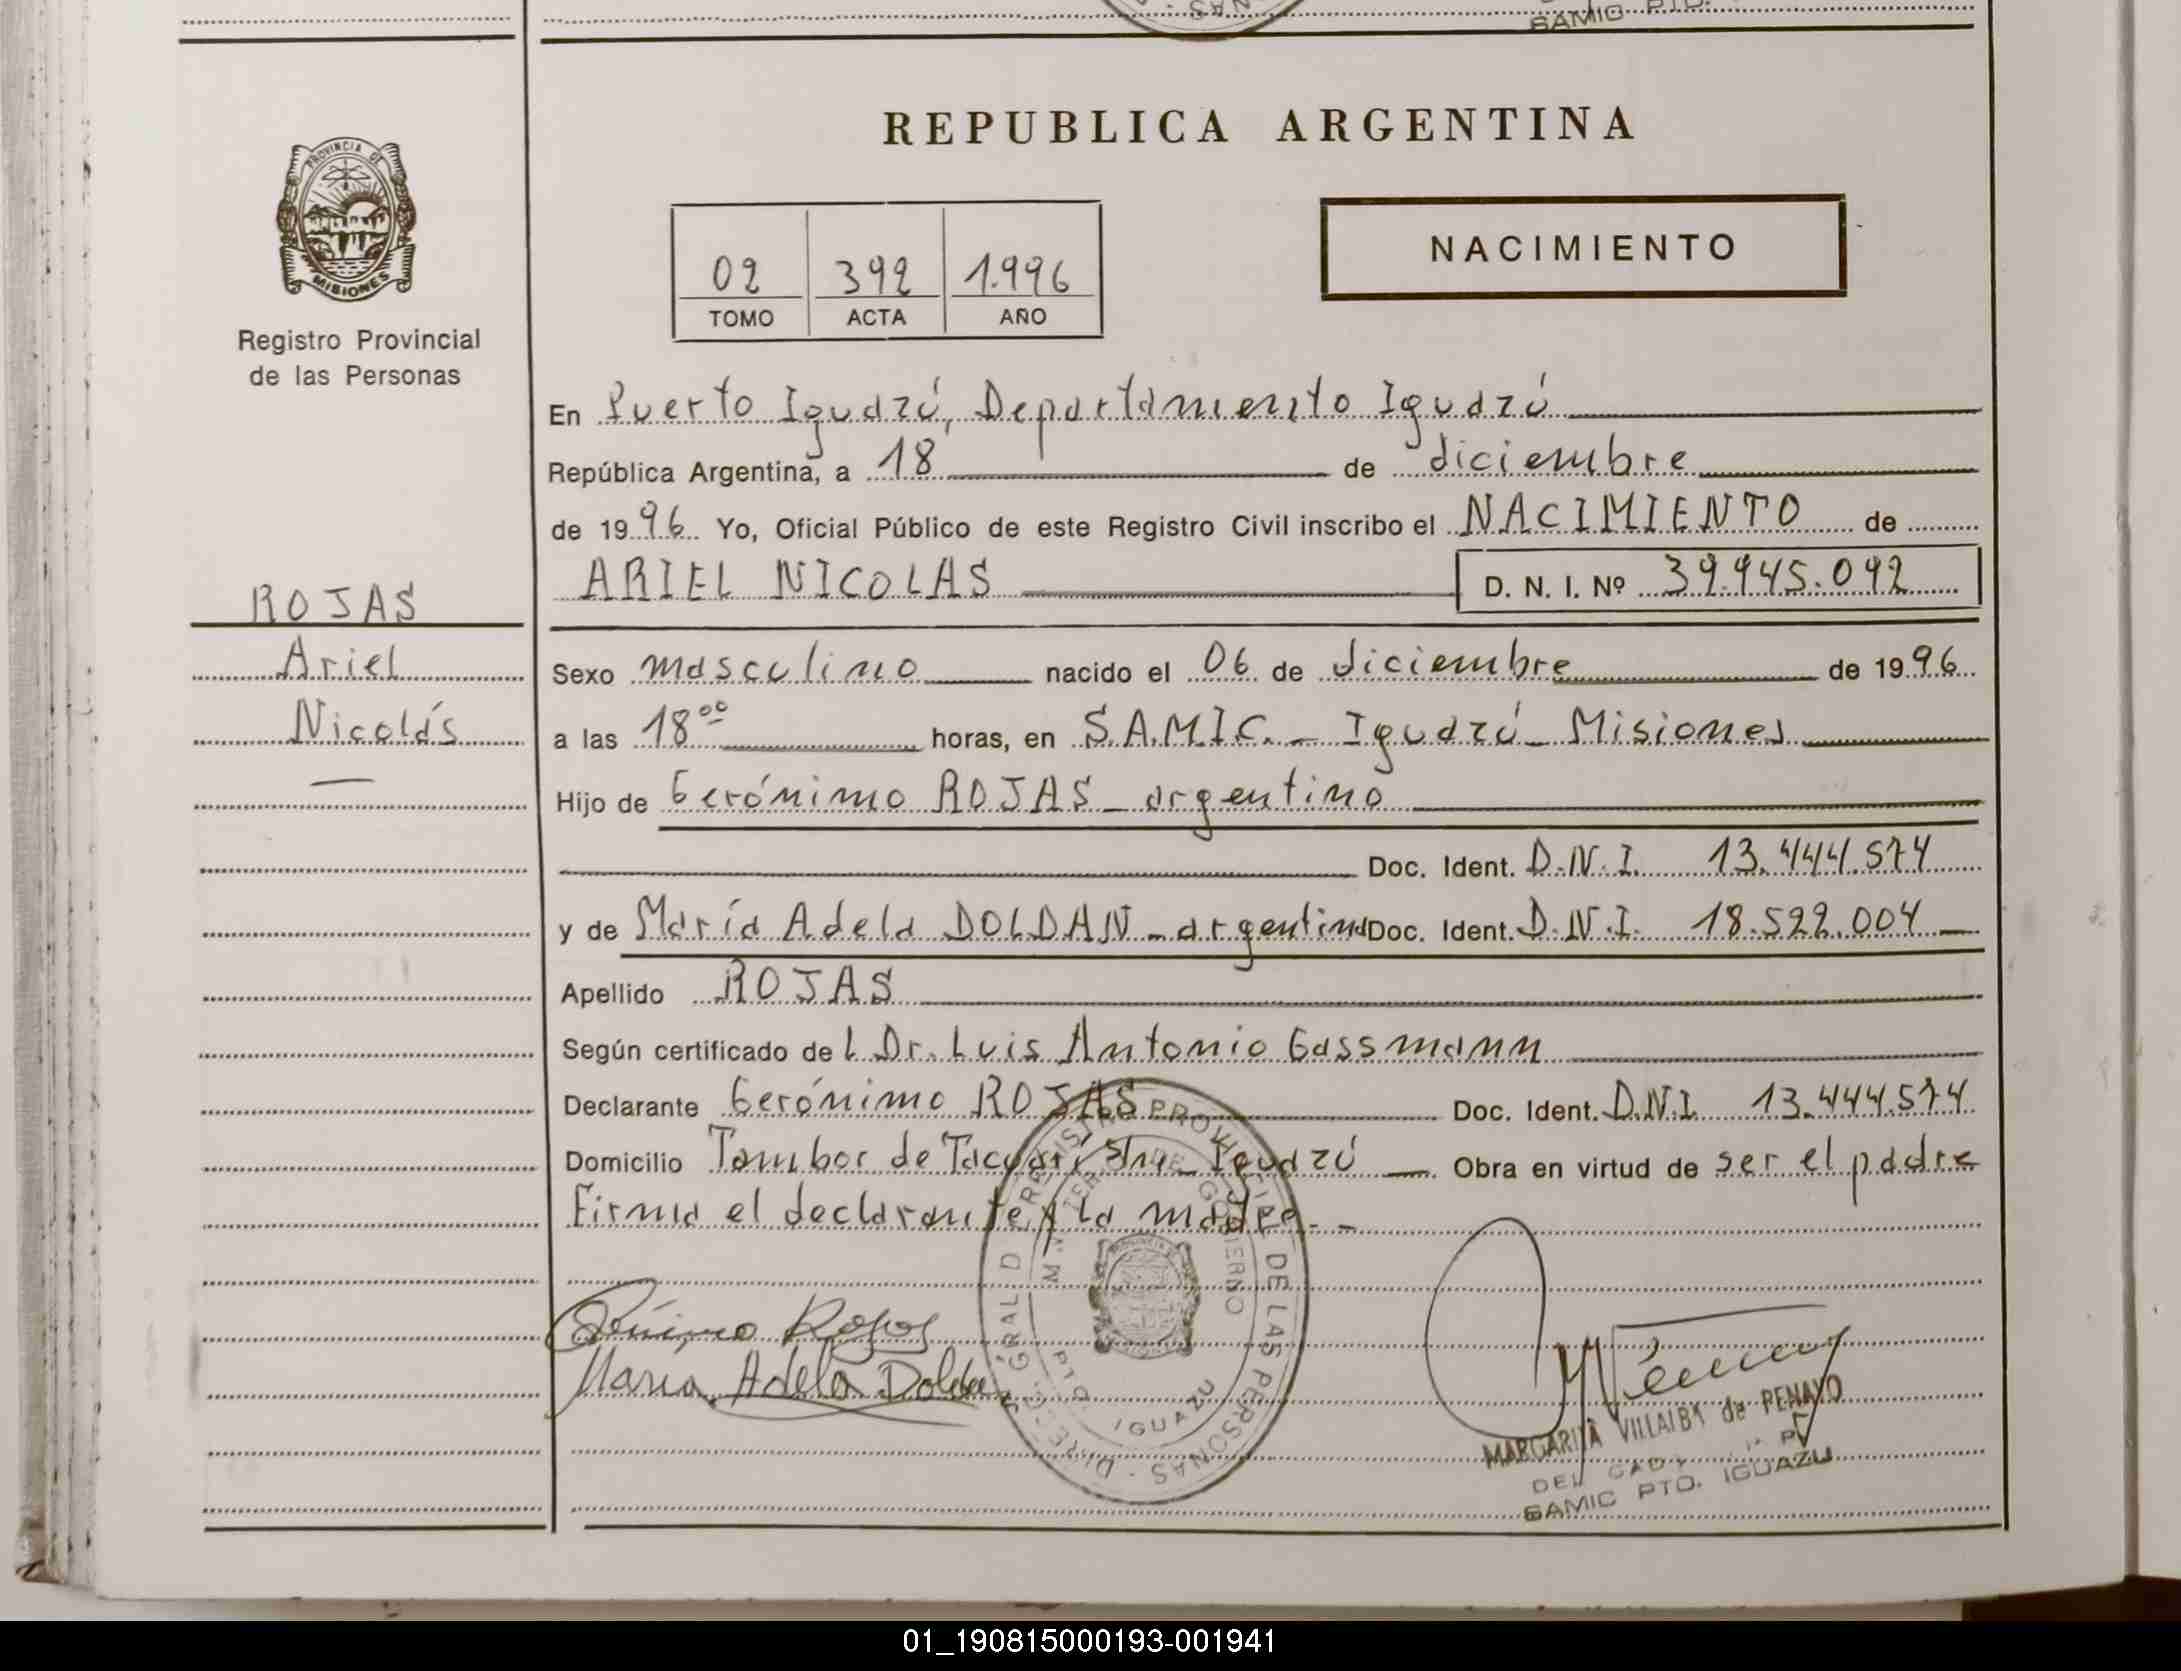 SAMIC PTO.
REPUBLICA ARGENTINA
PROVINCIA DE
MISIONES
Registro Provincial
de las Personas
02 392 1.996
TOMO ACTA AÑO
NACIMIENTO
En Puerto Iguazú, Departamento Iguazú
República Argentina, a 18 de diciembre
de 1996 Yo, Oficial Público de este Registro Civil inscribo el NACIMIENTO de
ARIEL NICOLAS D. N. I. Nº 39.945.092
ROJAS
Ariel
Nicolás
Sexo masculino nacido el 06 de diciembre de 1996
a las 18ºº horas, en S.A.M.I.C. - Iguazú - Misiones
Hijo de Gerónimo ROJAS - argentino
Doc. Ident. D.N.I. 13.444.574
y de María Adela DOLDAN - argentina Doc. Ident. D.N.I. 18.522.004
Apellido ROJAS
Según certificado del Dr. Luis Antonio Gassmann
Declarante Gerónimo ROJAS Doc. Ident. D.N.I. 13.444.574
Domicilio Tambor de Tacuarí S/n - Iguazú Obra en virtud de ser el padre
Firma el declarante y la madre. -
REGISTRO PROVINCIAL DE LAS PERSONAS
GOBIERNO
PTO IGUAZU
Rojas
Maria Adela Doldan
MARGARITA VILLALBA de PENAYO
SAMIC PTO. IGUAZU
01_190815000193-001941